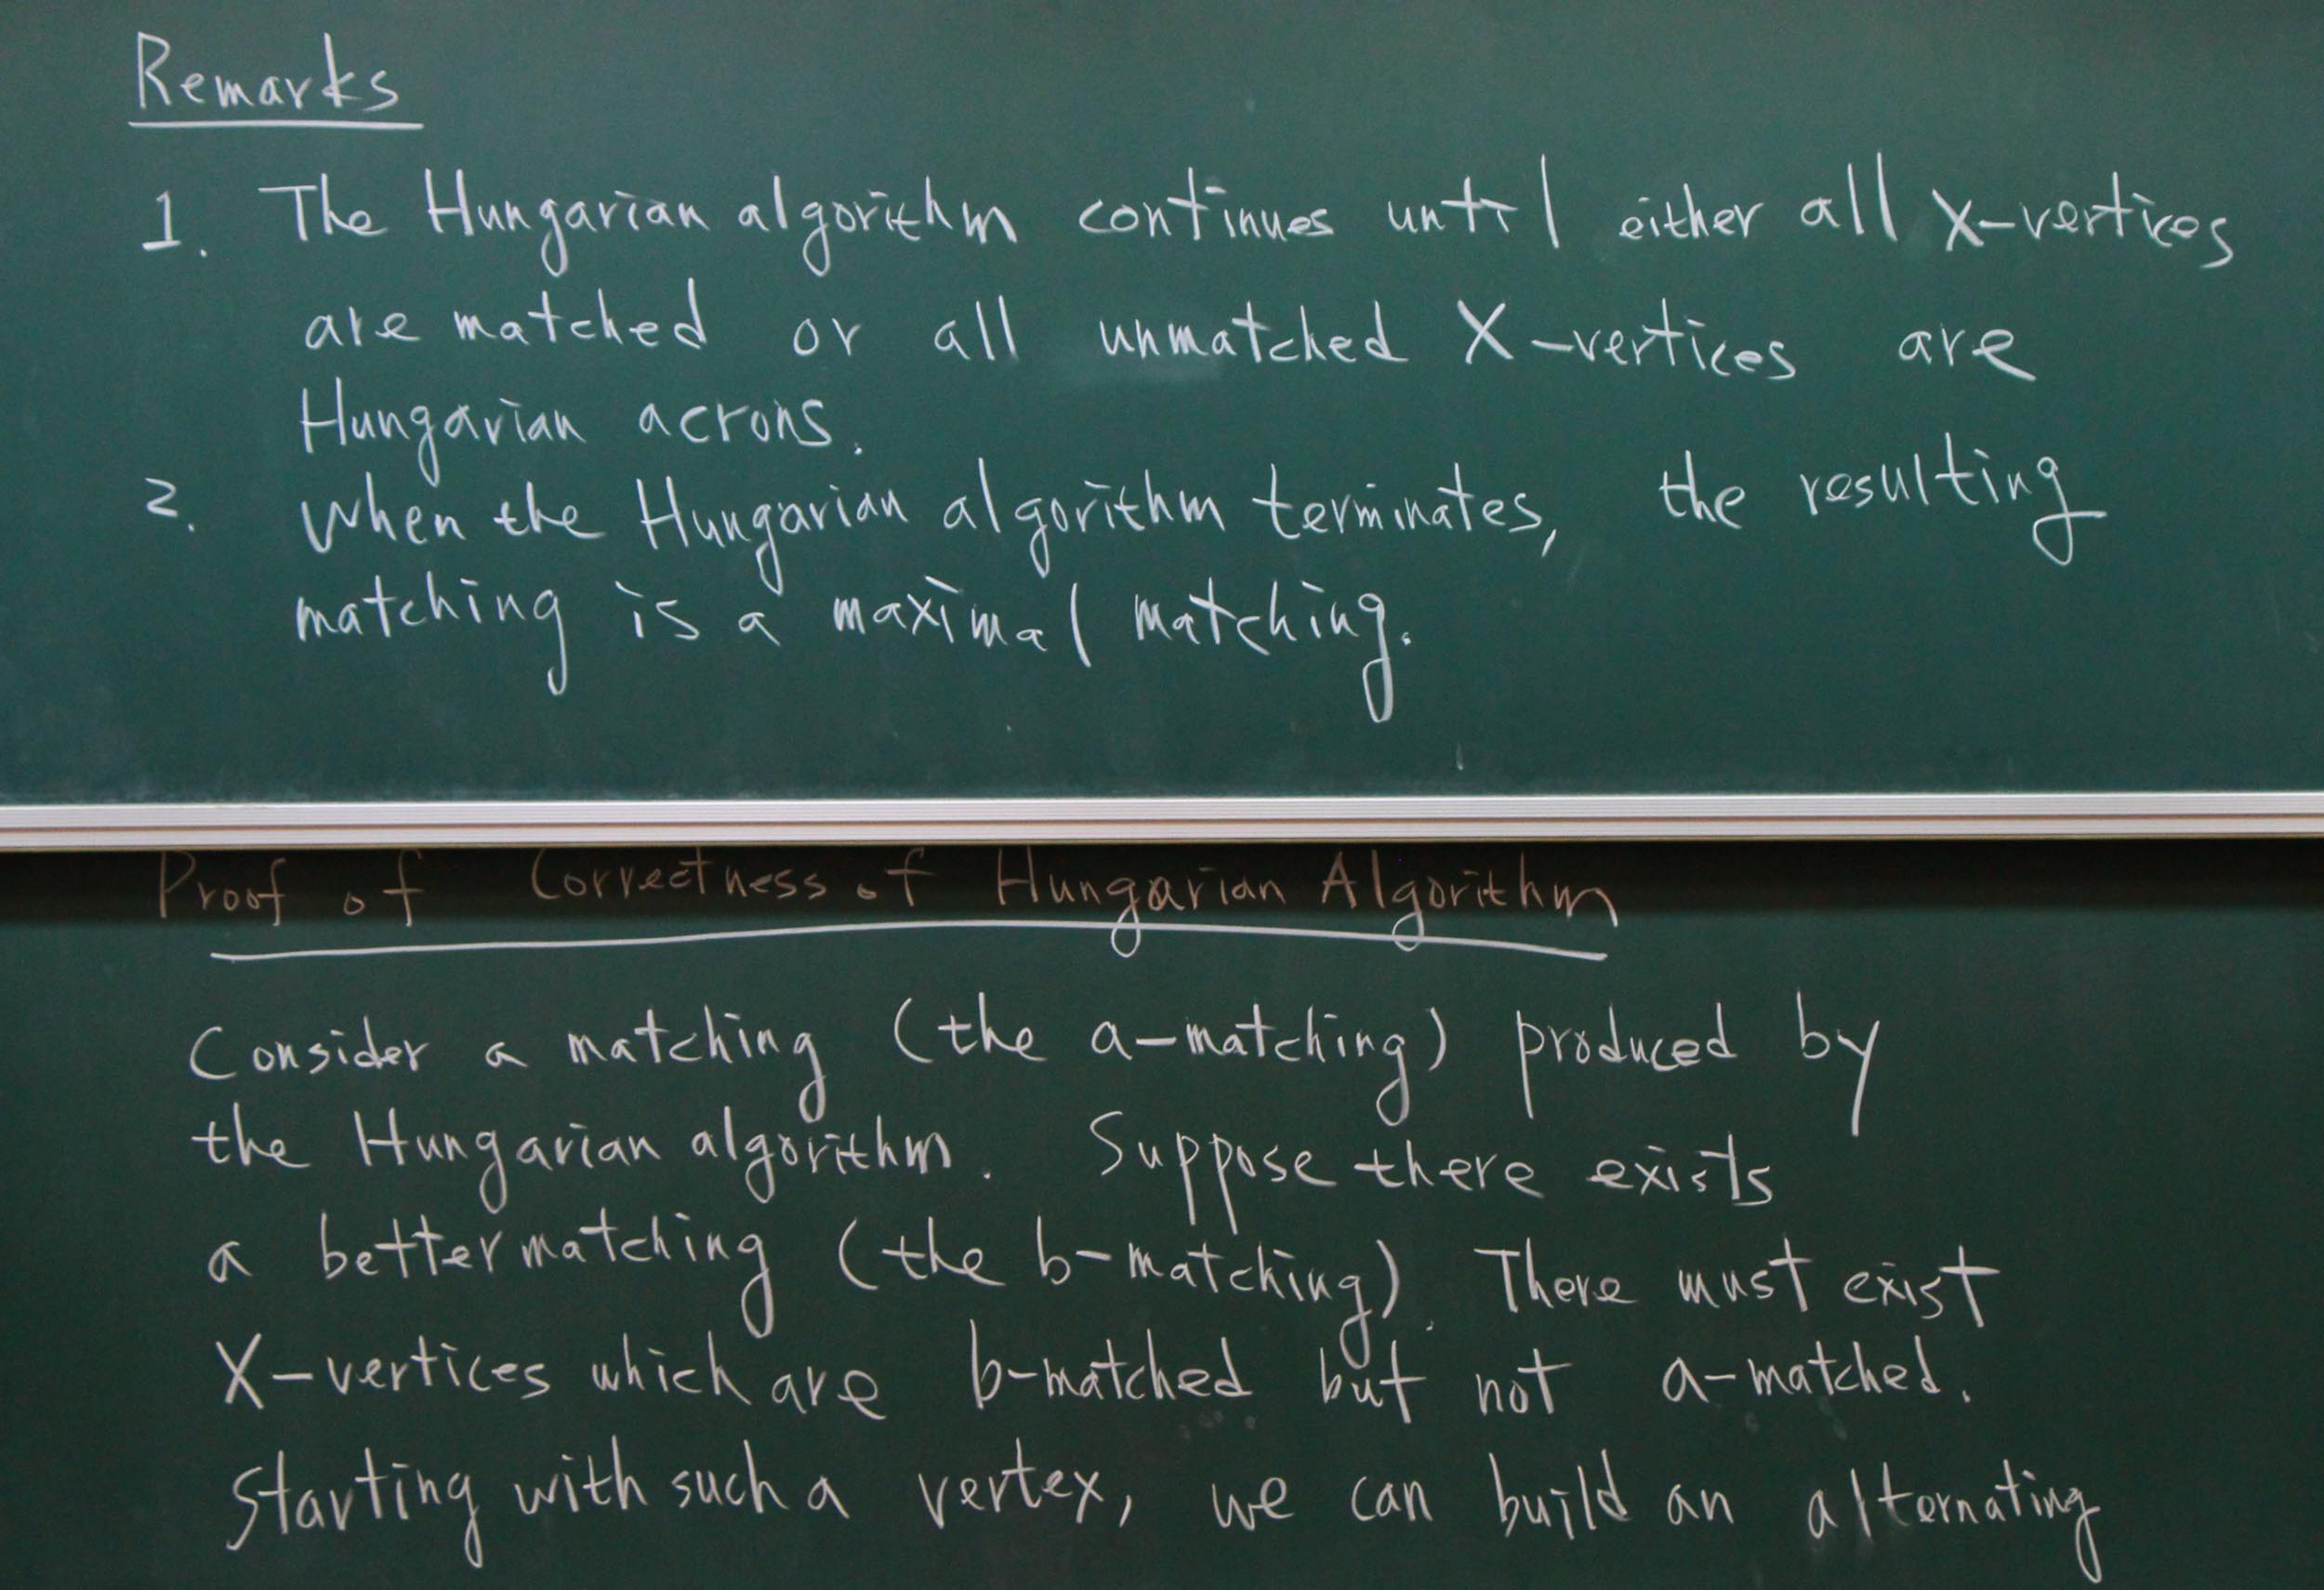 Remarks
1. The Hungarian algorithm continues until either all X-vertices
are matched or all unmatched X-vertices are
Hungarian acrons.
2. When the Hungarian algorithm terminates, the resulting
matching is a maximal matching.
Proof of Correctness of Hungarian Algorithm
Consider a matching (the a-matching) produced by
the Hungarian algorithm. Suppose there exists
a better matching (the b-matching). There must exist
X-vertices which are b-matched but not a-matched.
Starting with such a vertex, we can build an alternating